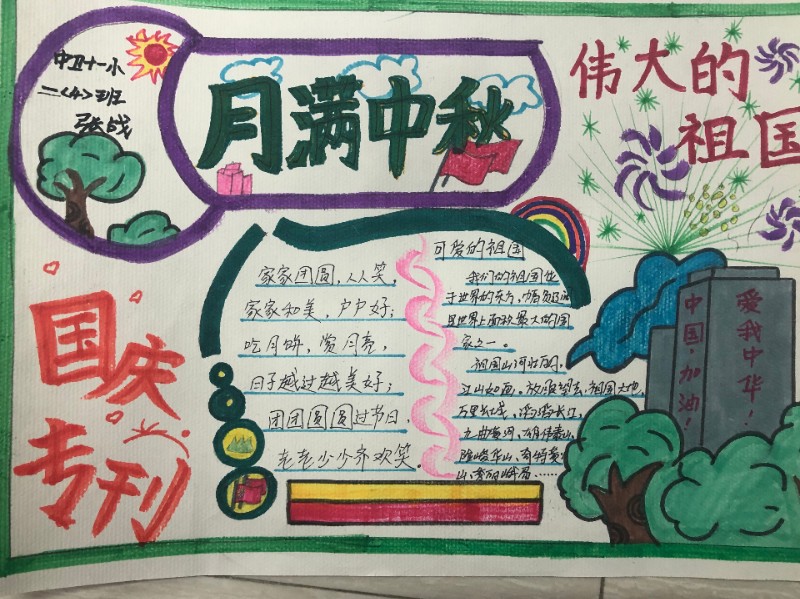 中卫十一小
二<4>班
张战
月满中秋
伟大的
祖国
国庆
专刊
家家团圆，人人笑，
家家和美，户户好；
吃月饼，赏月亮，
日子越过越美好；
团团圆圆过节日，
老老少少齐欢笑。
可爱的祖国
我们的祖国位
于世界的东方，幅员辽阔
是世界上面积最大的国
家之一。
祖国山河壮丽，
江山如画，放眼望去，祖国大地，
万里长城、滔滔长江，
九曲黄河、雄伟泰山，
险峰华山、奇特黄
山、秀丽峨眉……
爱我中华！
中国，加油！